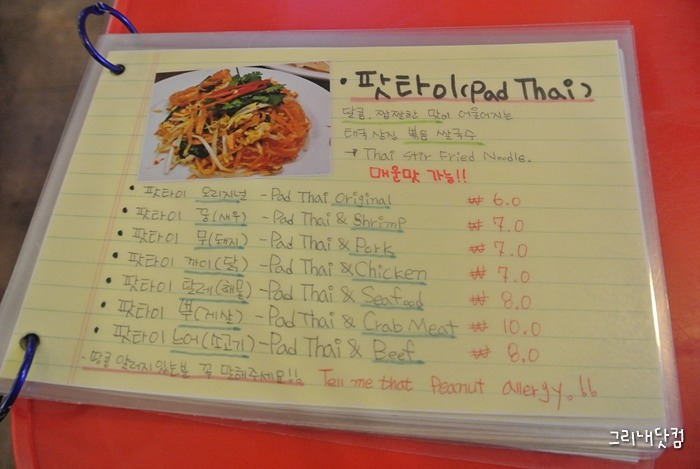 • 팟타이(Pad Thai)
달콤. 짭짤한 맛이 어울어지는
태국 삼장 볶음 쌀국수
→ Thai Stir Fried Noodle.
매운맛 가능!!
• 팟타이 오리지널 - Pad Thai Original ₩ 6.0
• 팟타이 꿍(새우) - Pad Thai & Shrimp ₩ 7.0
• 팟타이 무(돼지) - Pad Thai & Pork ₩ 7.0
• 팟타이 까이(닭) - Pad Thai & Chicken ₩ 7.0
• 팟타이 탈레(해물) - Pad Thai & Seafood ₩ 8.0
• 팟타이 뿌(게살) - Pad Thai & Crab Meat ₩ 10.0
• 팟타이 느어(소고기) - Pad Thai & Beef ₩ 8.0
- 땅콩 알러지 있는분 꼭 말해주세요!! Tell me that Peanut allergy.
그리내닷컴